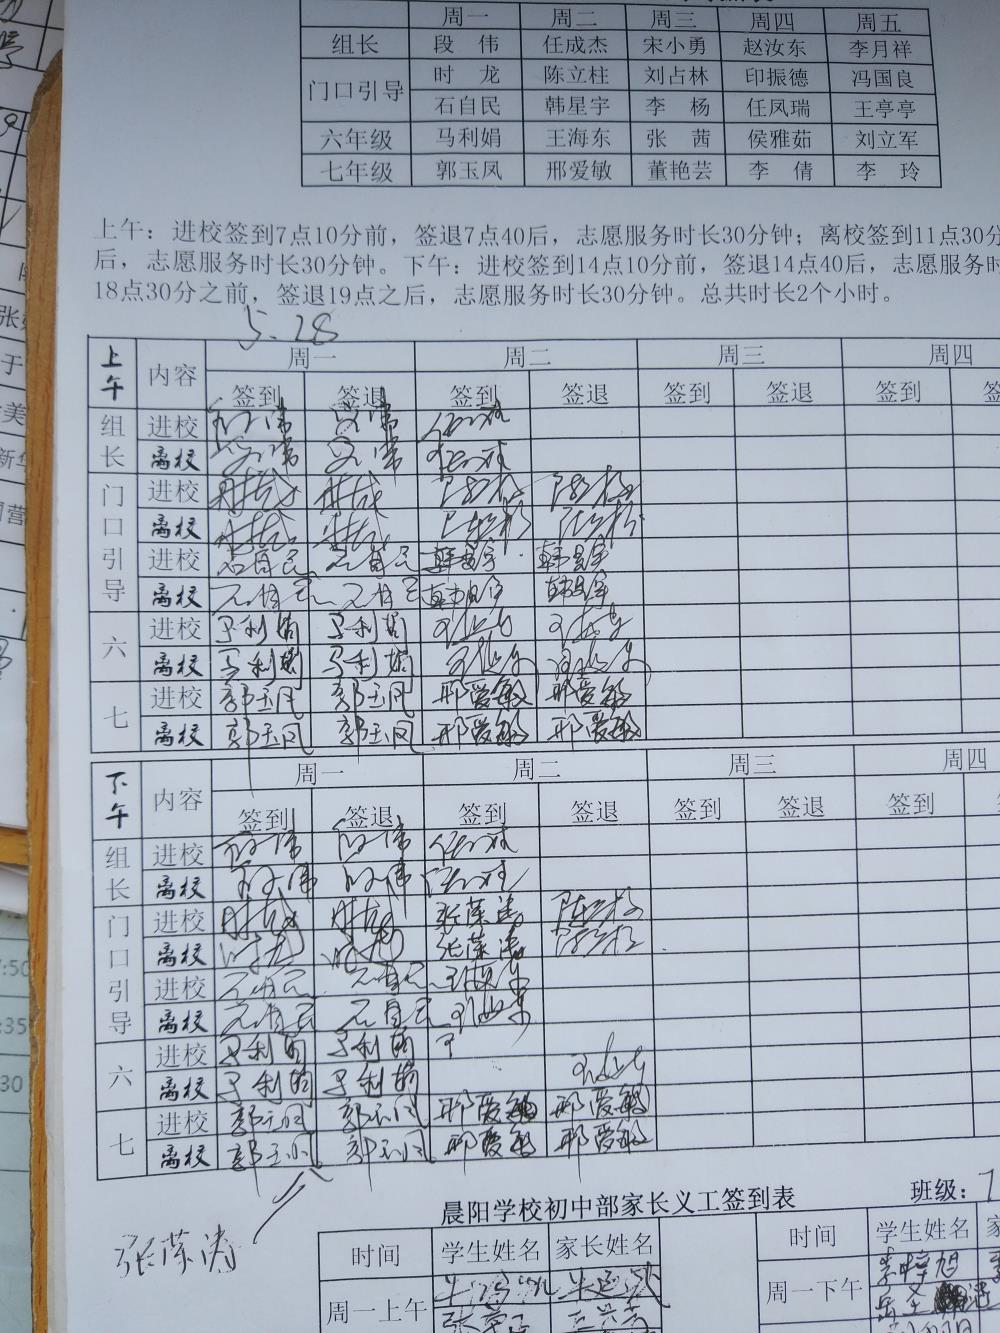 周一 周二 周三 周四 周五
组长 段 伟 任成杰 宋小勇 赵汝东 李月祥
门口引导 时 龙 陈立柱 刘占林 印振德 冯国良
石自民 韩星宇 李 杨 任凤瑞 王亭亭
六年级 马利娟 王海东 张 茜 侯雅茹 刘立军
七年级 郭玉凤 邢爱敏 董艳芸 李 倩 李 玲
上午：进校签到7点10分前，签退7点40后，志愿服务时长30分钟；离校签到11点30分
后，志愿服务时长30分钟。下午：进校签到14点10分前，签退14点40后，志愿服务时
18点30分之前，签退19点之后，志愿服务时长30分钟。总共时长2个小时。
5.28
上午 内容 周一 周二 周三 周四
签到 签退 签到 签退 签到 签退 签到
组长 进校 段伟 段伟 任成杰
离校 段伟 段伟 任成杰
门口引导 进校 时龙 时龙 陈立柱 陈立柱
离校 时龙 时龙 陈立柱 陈立柱
进校 石自民 石自民 韩星宇 韩星宇
离校 石自民 石自民 韩星宇 韩星宇
六 进校 马利娟 马利娟 王海东 王海东
离校 马利娟 马利娟 王海东 王海东
七 进校 郭玉凤 郭玉凤 邢爱敏 邢爱敏
离校 郭玉凤 郭玉凤 邢爱敏 邢爱敏
下午 内容 周一 周二 周三 周四
签到 签退 签到 签退 签到 签退 签到
组长 进校 段伟 段伟 任成杰
离校 段伟 段伟 任成杰
门口引导 进校 时龙 时龙 张荣涛 陈立柱
离校 时龙 时龙 张荣涛 陈立柱
进校 石自民 石自民 王海东
离校 石自民 石自民 王海东
六 进校 马利娟 马利娟
离校 马利娟 马利娟 王海东
七 进校 郭玉凤 郭玉凤 邢爱敏 邢爱敏
离校 郭玉凤 郭玉凤 邢爱敏 邢爱敏
张荣涛
晨阳学校初中部家长义工签到表 班级：7
时间 学生姓名 家长姓名 时间 学生姓名
周一上午 周一下午